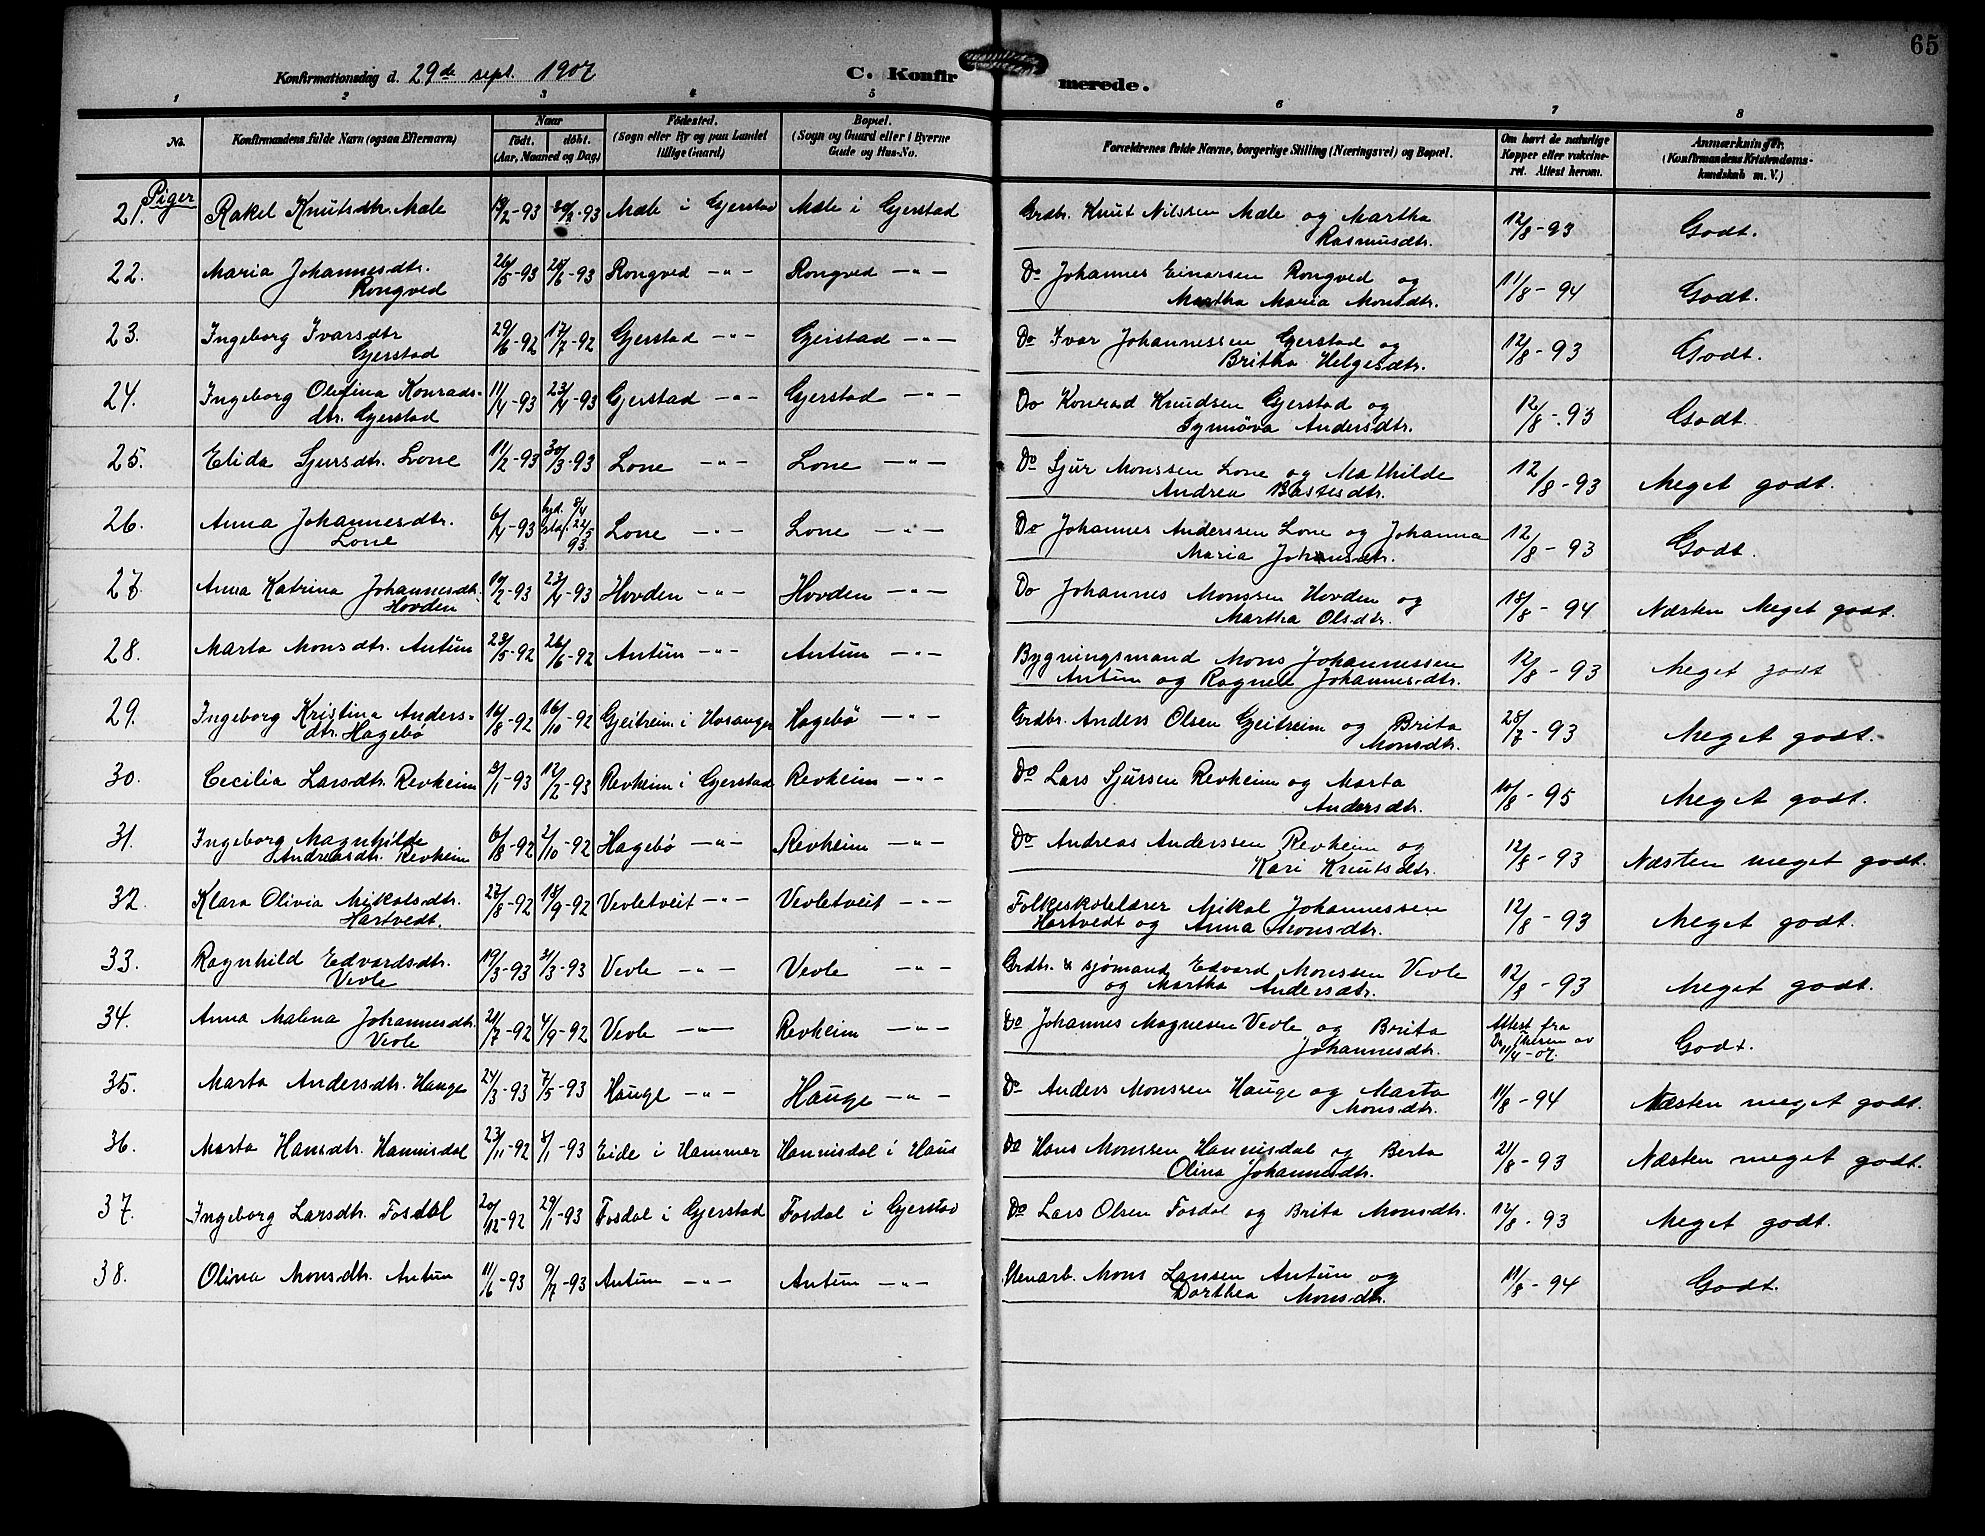 65
Konfirmationsdag d. 29de sept. 1907 C. Konfirmerede.
1 2 3 4 5 6 7 8
No. Konfirmandens fulde Navn (ogsaa Efternavn) Naar født. døbt. (Aar, Maaned og Dag) Fødested. (Sogn eller By og paa Landet tillige Gaard) Bopæl. (Sogn og Gaard eller i Byerne Gade og Hus-No. Forældrenes fulde Navne, borgerlige Stilling (Næringsvei) og Bopæl. Om havt de naturlige Kopper eller vakcineret. Attest herom. Anmærkninger. (Konfirmandens Kristendomskundskab m. V.)
Piger
21. Rakel Knutsdtr. Mæle 19/2-93 30/3-93 Mæle i Gjerstad Mæle i Gjerstad Grdbr. Knut Nilssen Mæle og Martha 12/8-93 Godt.
Rasmusdtr.
22. Maria Johannesdtr. 26/5-93 25/6-93 Rongved -"- Rongved -"- Do Johannes Einarsen Rongved og 11/8-94 Godt.
Rongved Martha Maria Monsdtr.
23. Ingeborg Ivarsdtr 29/6-92 17/7-92 Gjerstad -"- Gjerstad -"- Do Ivar Johannessen Gjerstad og 12/8-93 Godt.
Gjerstad Britha Helgesdtr.
24. Ingeborg Olefina Konrads- 11/4-93 23/4-93 Gjerstad -"- Gjerstad -"- Do Konrad Knudsen Gjerstad og 12/8-93 Godt.
dtr. Gjerstad Synnøva Andersdtr.
25. Elida Sjursdtr. Lone 11/2-93 30/3-93 Lone -"- Lone -"- Do Sjur Monssen Lone og Mathilde 12/8-93 Meget godt.
Andrea Bastesdtr.
26. Anna Johannesdtr. 6/4-93 hjd. 8/4 stad. 22/5 93. Lone -"- Lone -"- Do Johannes Anderssen Lone og Johanna 12/8-93 Godt.
Lone Maria Johansdtr.
27. Anna Katrina Johannesdtr. 10/2-93 23/4-93 Hovden -"- Hovden -"- Do Johannes Monssen Hovden og 18/8-94 Næsten Meget godt.
Hovden Martha Olsdtr.
28. Marta Monsdtr. Antun 23/5-92 26/6-92 Antun -"- Antun -"- Bygningsmand Mons Johannessen 12/8-93 Meget godt
Antun og Ragned Johannesdtr.
29. Ingeborg Kristina Anders- 16/8-92 16/10-92 Gjeitreim i Hosanger Hagebø -"- Grdbr. Anders Olsen Gjeitreim og Brita 25/7-93 Meget godt.
dtr. Hagebø Monsdtr.
30. Cecilia Larsdtr. Revheim 2/1-93 12/2-93 Revheim i Gjerstad Revheim -"- Do Lars Sjurssen Revheim og Marta 10/8-95 Meget godt.
Andersdtr.
31. Ingeborg Magnhilde 6/8-92 2/10-92 Hagebø -"- Revheim -"- Do Andreas Anderssen Revheim og 12/8-93 Næsten meget godt.
Andreasdtr. Revheim Kari Knutsdtr.
32. Klara Olivia Mikalsdtr. 27/8-92 18/9-92 Vevletveit -"- Vevletveit -"- Folkeskolelærer Mikal Johannessen 12/8-93 Meget godt.
Hartvedt. Hartvedt og Anna Monsdtr.
33. Ragnhild Edvardsdtr. 19/3-93 31/3-93 Vevle -"- Vevle -"- Grdbr. & sjømand Edvard Monssen Vevle 12/8-93 Meget godt.
Vevle og Martha Andersdtr.
34. Anna Malena Johannesdtr. 21/7-92 4/9-92 Vevle -"- Revheim -"- Do Johannes Magnesen Vevle og Brita Attest fra Godt.
Vevle Johannesdtr. Dr. av 11/4-07.
35. Marta Andersdtr. Hauge 24/3-93 7/5-93 Hauge -"- Hauge -"- Do Anders Monssen Hauge og Marta 11/8-94 Næsten meget godt.
Monsdtr.
36. Marta Hansdtr. Hannisdal 23/11-92 8/1-93 Eide i Hammer Hannisdal i Haus Do Hans Monssen Hannisdal og Berta 21/8-93 Næsten meget godt.
Olina Johannesdtr.
37. Ingeborg Larsdtr. Fosdal 20/12-92 29/1-93 Fosdal i Gjerstad Fosdal i Gjerstad Do Lars Olsen Fosdal og Brita Monsdtr. 12/8-93 Meget godt.
38. Olina Monsdtr. Antun 11/6-93 9/7-93 Antun -"- Antun -"- Stenarb. Mons Larssen Antun og 11/8-94 Godt.
Dorthea Monsdtr.